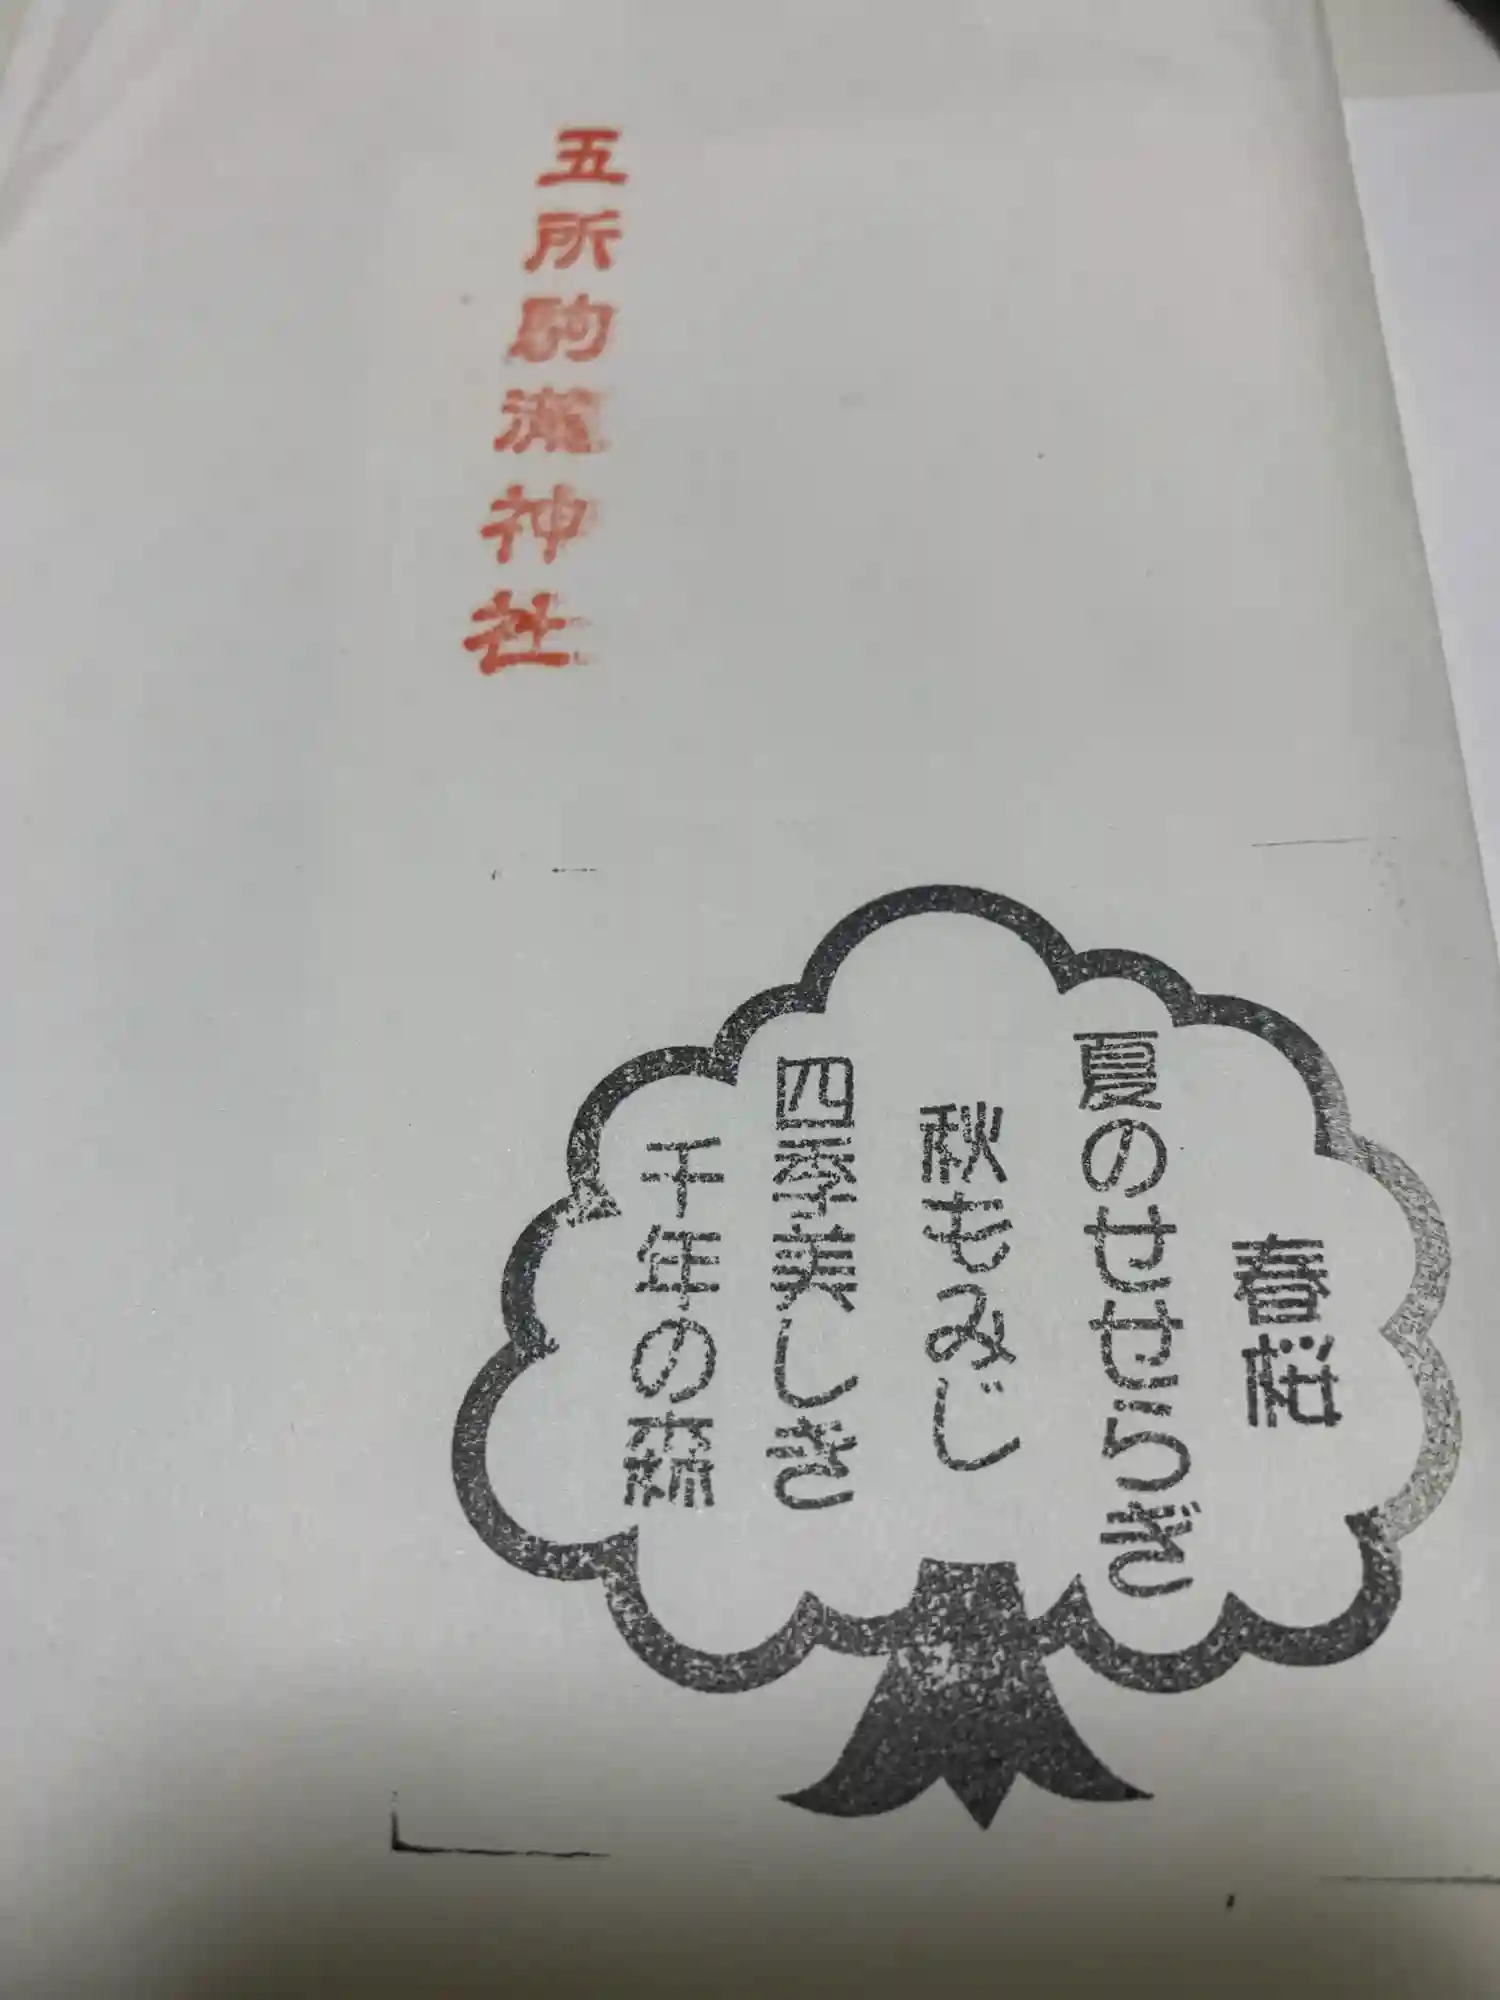 五所駒瀧神社
春桜
夏のせせらぎ
秋もみじ
四季美しき
千年の森